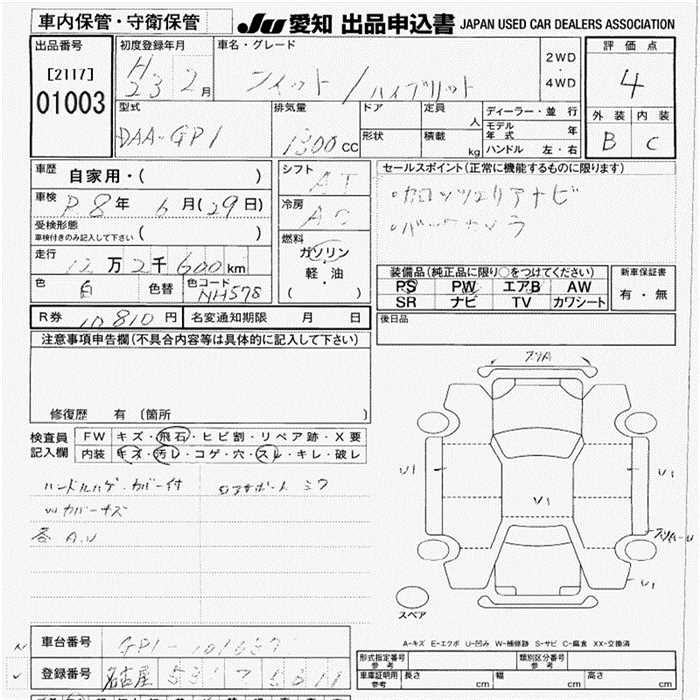 車内保管・守衛保管
JU 愛知 出品申込書 JAPAN USED CAR DEALERS ASSOCIATION
出品番号 [2117] 01003
初度登録年月 H23 2月
車名・グレード フィット / ハイブリット
2WD
4WD
評価点 4
外装 内装
B C
型式 DAA-GP1
排気量 1300 CC
ドア 定員 人
形状 積載 kg
ディーラー・並行
モデル年式 年
ハンドル 左・右
車歴 自家用・( )
車検 R8年 6月(29日)
受検形態 ( )
車検付きのみ記入して下さい
走行 12万2千600km
色 白 色替 色コード NH578
シフト AT
冷房 AC
燃料
ガソリン
・
軽・油
( )
セールスポイント(正常に機能するものに限ります)
ナビ
・バックカメラ
装備品(純正品に限り○をつけてください)
PS PW エアB AW
SR ナビ TV カワシート
新車保証書
有・無
R券 10810円 名変通知期限 月 日
後日品
注意事項申告欄(不具合内容等は具体的に記入して下さい)
修復歴 有 (箇所 )
検査員記入欄
FW キズ・飛石・ヒビ割・リペア跡・X要
内装 キズ・汚レ・コゲ・穴・スレ・キレ・破レ
カバー付
カバーキズ
各A.U
U1
U1
U1
U1
スペア
A-キズ E-エクボ U-凹み W-補修跡 S-サビ C-腐食 XX-交換済
車台番号 GP1-
登録番号 名古屋
形式指定番号
参考
類別区分番号
参考
車庫証明用
参考
長さ cm 幅 cm 高さ cm